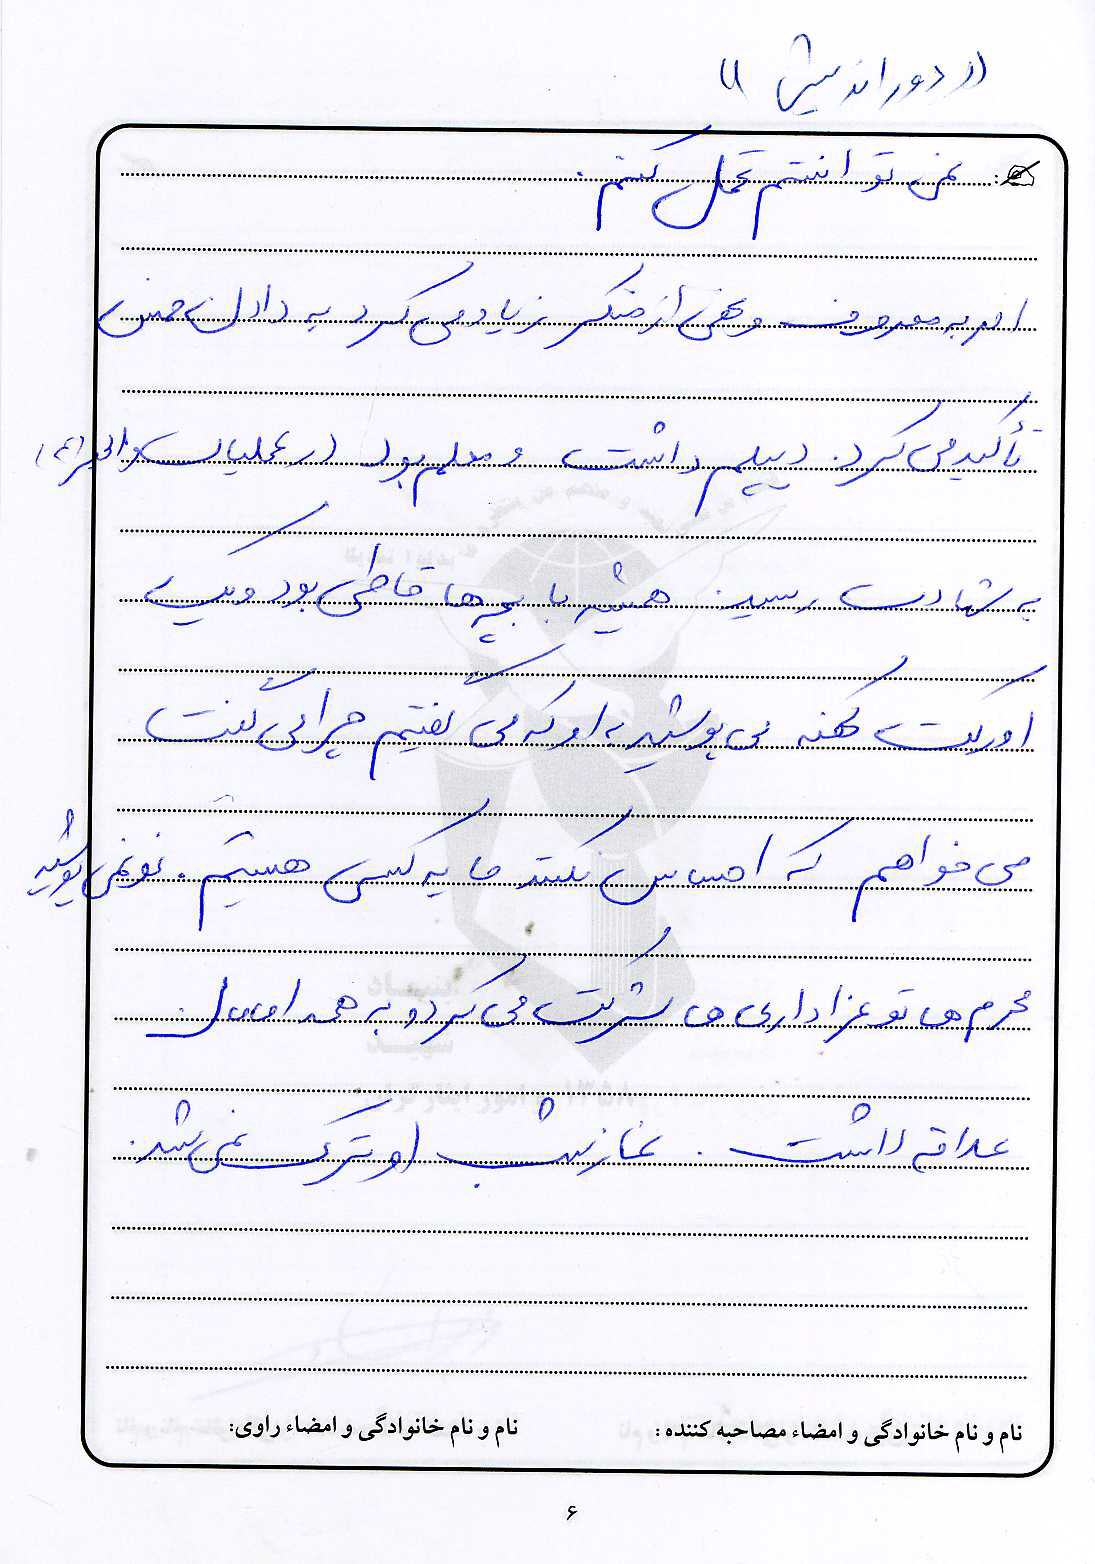 از دوراندیشی
نمی توانستم تحمل کنم.
امر به معروف و نهی از منکر زیاد می کرد به دادن خمس
تأکید می کرد. دیپلم داشت و معلم بود در عملیات والفجر (۴)
به شهادت رسید. همیشه با بچه ها قاطی بود و یک
اورکت کهنه می پوشید به او که می گفتیم چرا می گفت
می خواهم که احساس نکنند ما یه کسی هستیم. نو نمی پوشید
محرم ها تو عزاداری ها شرکت می کرد و به همه
علاقه داشت. نماز شب او ترک نمی شد.
نام و نام خانوادگی و امضاء مصاحبه کننده :
نام و نام خانوادگی و امضاء راوی:
۶